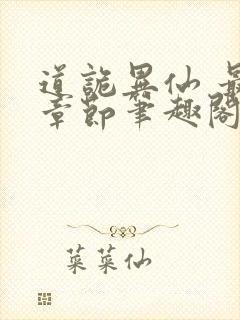 道詭異仙 最
章節筆趣閣
菜菜仙